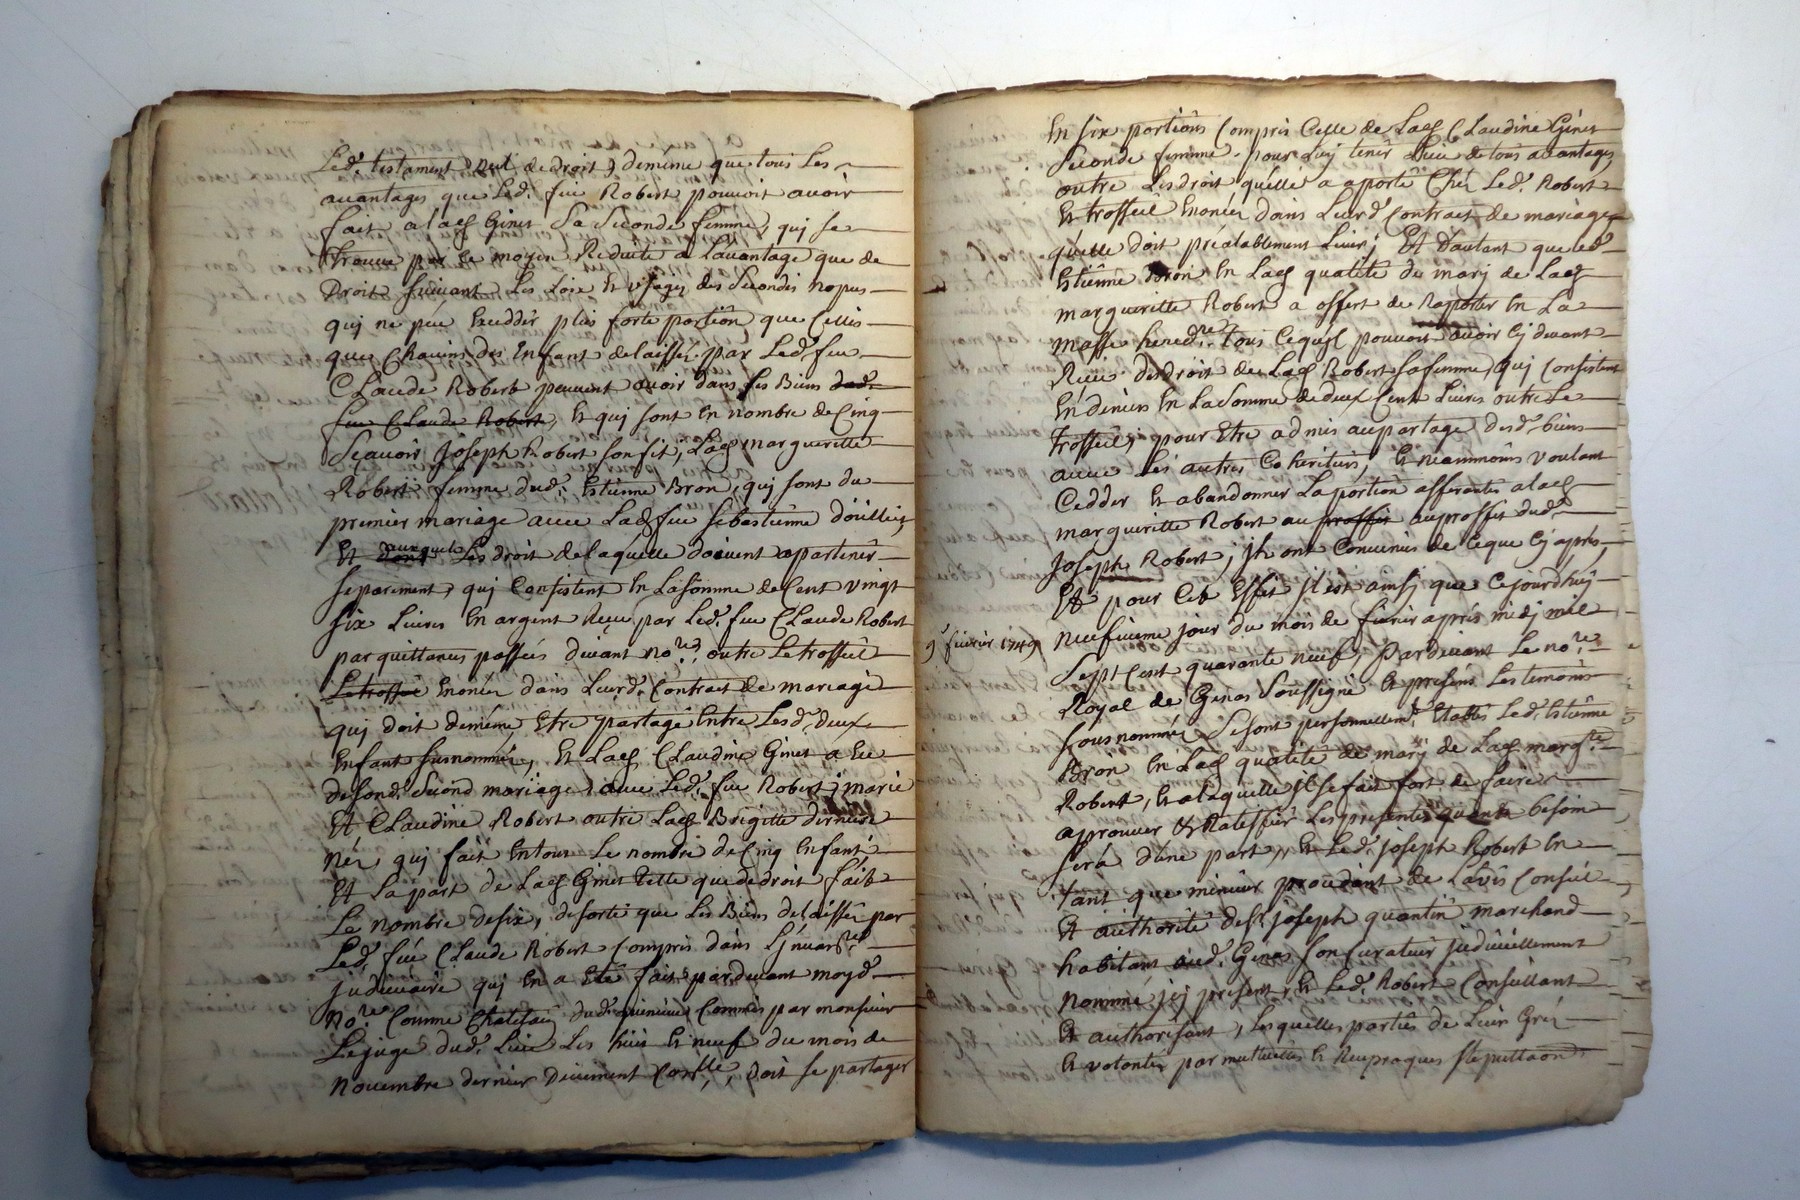 Led. testament nul de droit, deméme que tous Les
auantages que Led. feu Robert pouuoit auoir
fait a lad Ginet Sa Seconde femme, quj se
trouue par ce moyen Reduite a L'auantage que de
Droit suiuant Les Loix Et Vsages des Secondes nopces
quj ne peu Exedder plus forte portion que Celles
que Chacuns des Enfant delaissés par Led. feu
CLaude Robert peuuent auoir dans Les Biens dud.
feu CLaude Robert, Et quj sont En nombre de Cinq
Scauoir Joseph Robert son fis, Lad margueritte
Robert femme dud. Estienne Bron, quj sont du
premier mariage auec Lad feu sebastienne
Et dont auxquel Les droit de laquelle doiuent apartenir
separement, quj Consistent En La somme de Cent vingt
six Liures En argent Reçu par Led. feu CLaude Robert
par quittances passées diuant no.res, outre Le trossel
Le trossel Enoncer dans Leurd. Contract de mariage
quj doit deméme Etre partagé Entre Lesd. deux
Enfant susnommés, Et Lad CLaudine Ginet a Eu
desond. Second mariage auec Led. feu Robert, marie
Et CLaudine Robert outre Lad Brigitte derniere
née, quj fait En tous Le nombre de Cinq Enfant
Et La part de Lad Ginet telle que de droit fait
Le nombre de six, desorte que Les Biens delaissés par
Led. feu CLaude Robert Compris dans L'jnuantre
judiciaire quj En a Eté fait pardeuant moyd.
no.re Comme Chatelain dud. Commis par monsieur
Le juge dud. Lieu Les huit Et neuf du mois de
nouembre dernier Deuement Con.llé, doit se partager
En six portions Compris Celle de Lad CLaudine Ginet
Seconde femme pour Luy tenir Lieu de tous auantages
outre Les droit qu'elle a aporté Chez Led. Robert
Et trosseil Enoncer dans Leurd. Contract de mariage
qu'elle doit préalablement Leuer; Et d'autant que led.
Estienne Bron En Lad qualité du marj de Lad
margueritte Robert a offert de Raporter En La
masse hered.re tous Ce qu'jl pouuoit auoir Cj deuant
Reçu des droit de Lad Robert sa femme, quj Consistent
En deniers En La Somme de deux Cent Liures outre Le
trosseil, pour Etre admis au partage desd. biens
auec Les autres Coheritiers, Et neammoins voulant
Cedder Et abandonner La portion afferantes a lad
margueritte Robert au proffit au proffit dud.
Joseph Robert, jls ont Conuenus de Ce que Cj aprés,
Et pour Cet Effet jl est ainsj que Cejourd'huj
9.e feurier 1749
neufuieme jour du mois de feurier aprés midj mil
Sept Cent quarante neuf, Pardeuant Le no.re
Royal de Genas Soussigné Et presens Les temoins
sousnommés Se sont personnellem.t Etablis Led. Estienne
Bron En Lad qualité de marj de Lad marg.te
Robert, Et a laquelle jl se fait fort de faire
aprouuer Et Ratiffier Les presentes quant besoin
sera d'une part, Et Led. joseph Robert En
tant que mineur procedant de L'auis Conseil
Et authorité de s.r joseph quantin marchand
habitant aud. Genas son Curateur judiciellement
nommé jcj present, Et Led. Robert Conseillant
Et authorisant, Lesquelles parties de Leur Gréz
Et volontés par mutuelles Et Reciproques stipullaons